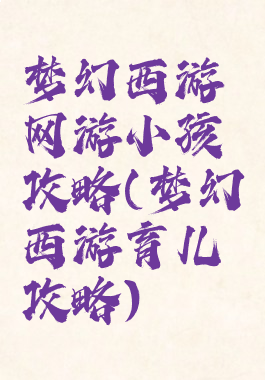 梦幻西游
网游小孩
攻略(梦幻
西游育儿
攻略)